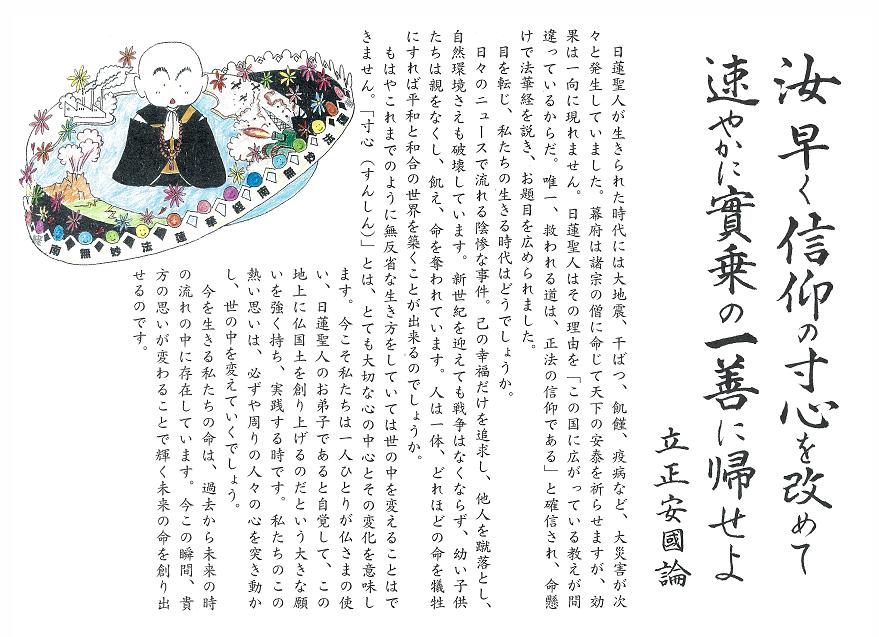 汝早く信仰の寸心を改めて
速やかに實乗の一善に帰せよ
立正安國論
日蓮聖人が生きられた時代には大地震、干ばつ、飢饉、疫病など、大災害が次
々と発生していました。幕府は諸宗の僧に命じて天下の安泰を祈らせますが、効
果は一向に現れません。日蓮聖人はその理由を「この国に広がっている教えが間
違っているからだ。唯一、救われる道は、正法の信仰である」と確信され、命懸
けで法華経を説き、お題目を広められました。
目を転じ、私たちの生きる時代はどうでしょうか。
日々のニュースで流れる陰惨な事件。己の幸福だけを追求し、他人を蹴落とし、
自然環境さえも破壊しています。新世紀を迎えても戦争はなくならず、幼い子供
たちは親をなくし、飢え、命を奪われています。人は一体、どれほどの命を犠牲
にすれば平和と和合の世界を築くことが出来るのでしょうか。
もはやこれまでのように無反省な生き方をしていては世の中を変えることはで
きません。「寸心（すんしん）」とは、とても大切な心の中心とその変化を意味し
ます。今こそ私たちは一人ひとりが仏さまの使
い、日蓮聖人のお弟子であると自覚して、この
地上に仏国土を創り上げるのだという大きな願
いを強く持ち、実践する時です。私たちのこの
熱い思いは、必ずや周りの人々の心を突き動か
し、世の中を変えていくでしょう。
今を生きる私たちの命は、過去から未来の時
の流れの中に存在しています。今この瞬間、貴
方の思いが変わることで輝く未来の命を創り出
せるのです。
南無妙法蓮華経南無妙法蓮